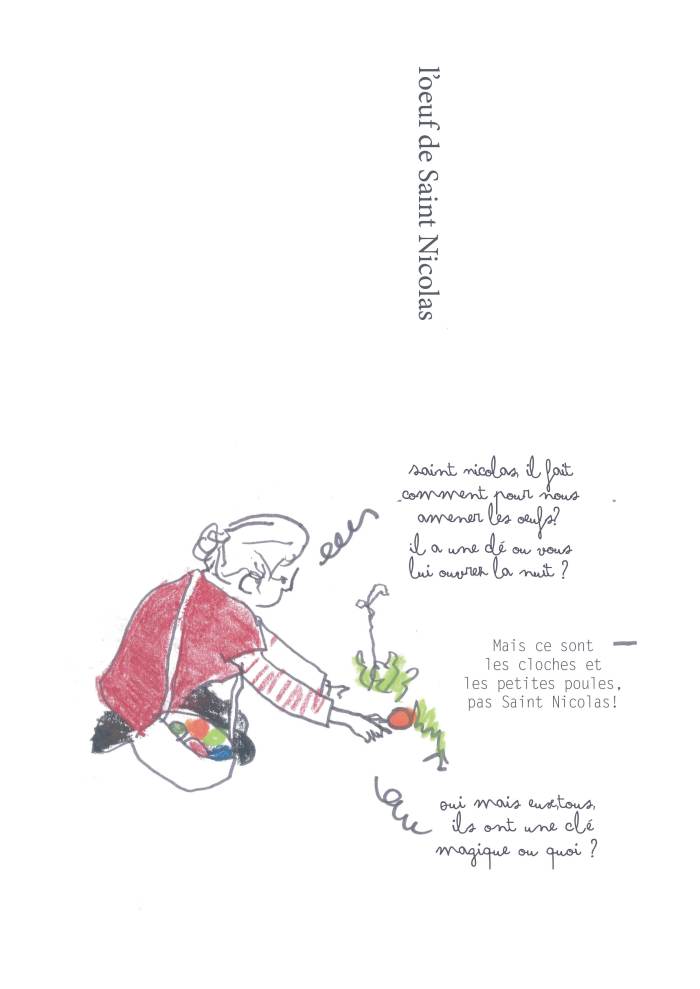 l'oeuf de Saint Nicolas
saint nicolas, il fait
comment pour nous
amener les oeufs?
il a une clé ou vous
lui ouvrez la nuit ?
Mais ce sont
les cloches et
les petites poules,
pas Saint Nicolas!
oui mais eux,tous,
ils ont une clé
magique ou quoi ?